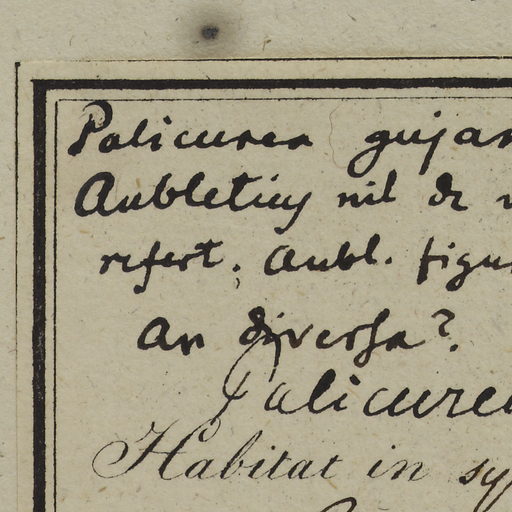 Palicurea gujan
Aubletius nil de
refert. Aubl. figu
An diversa?
Palicure
Habitat in sy